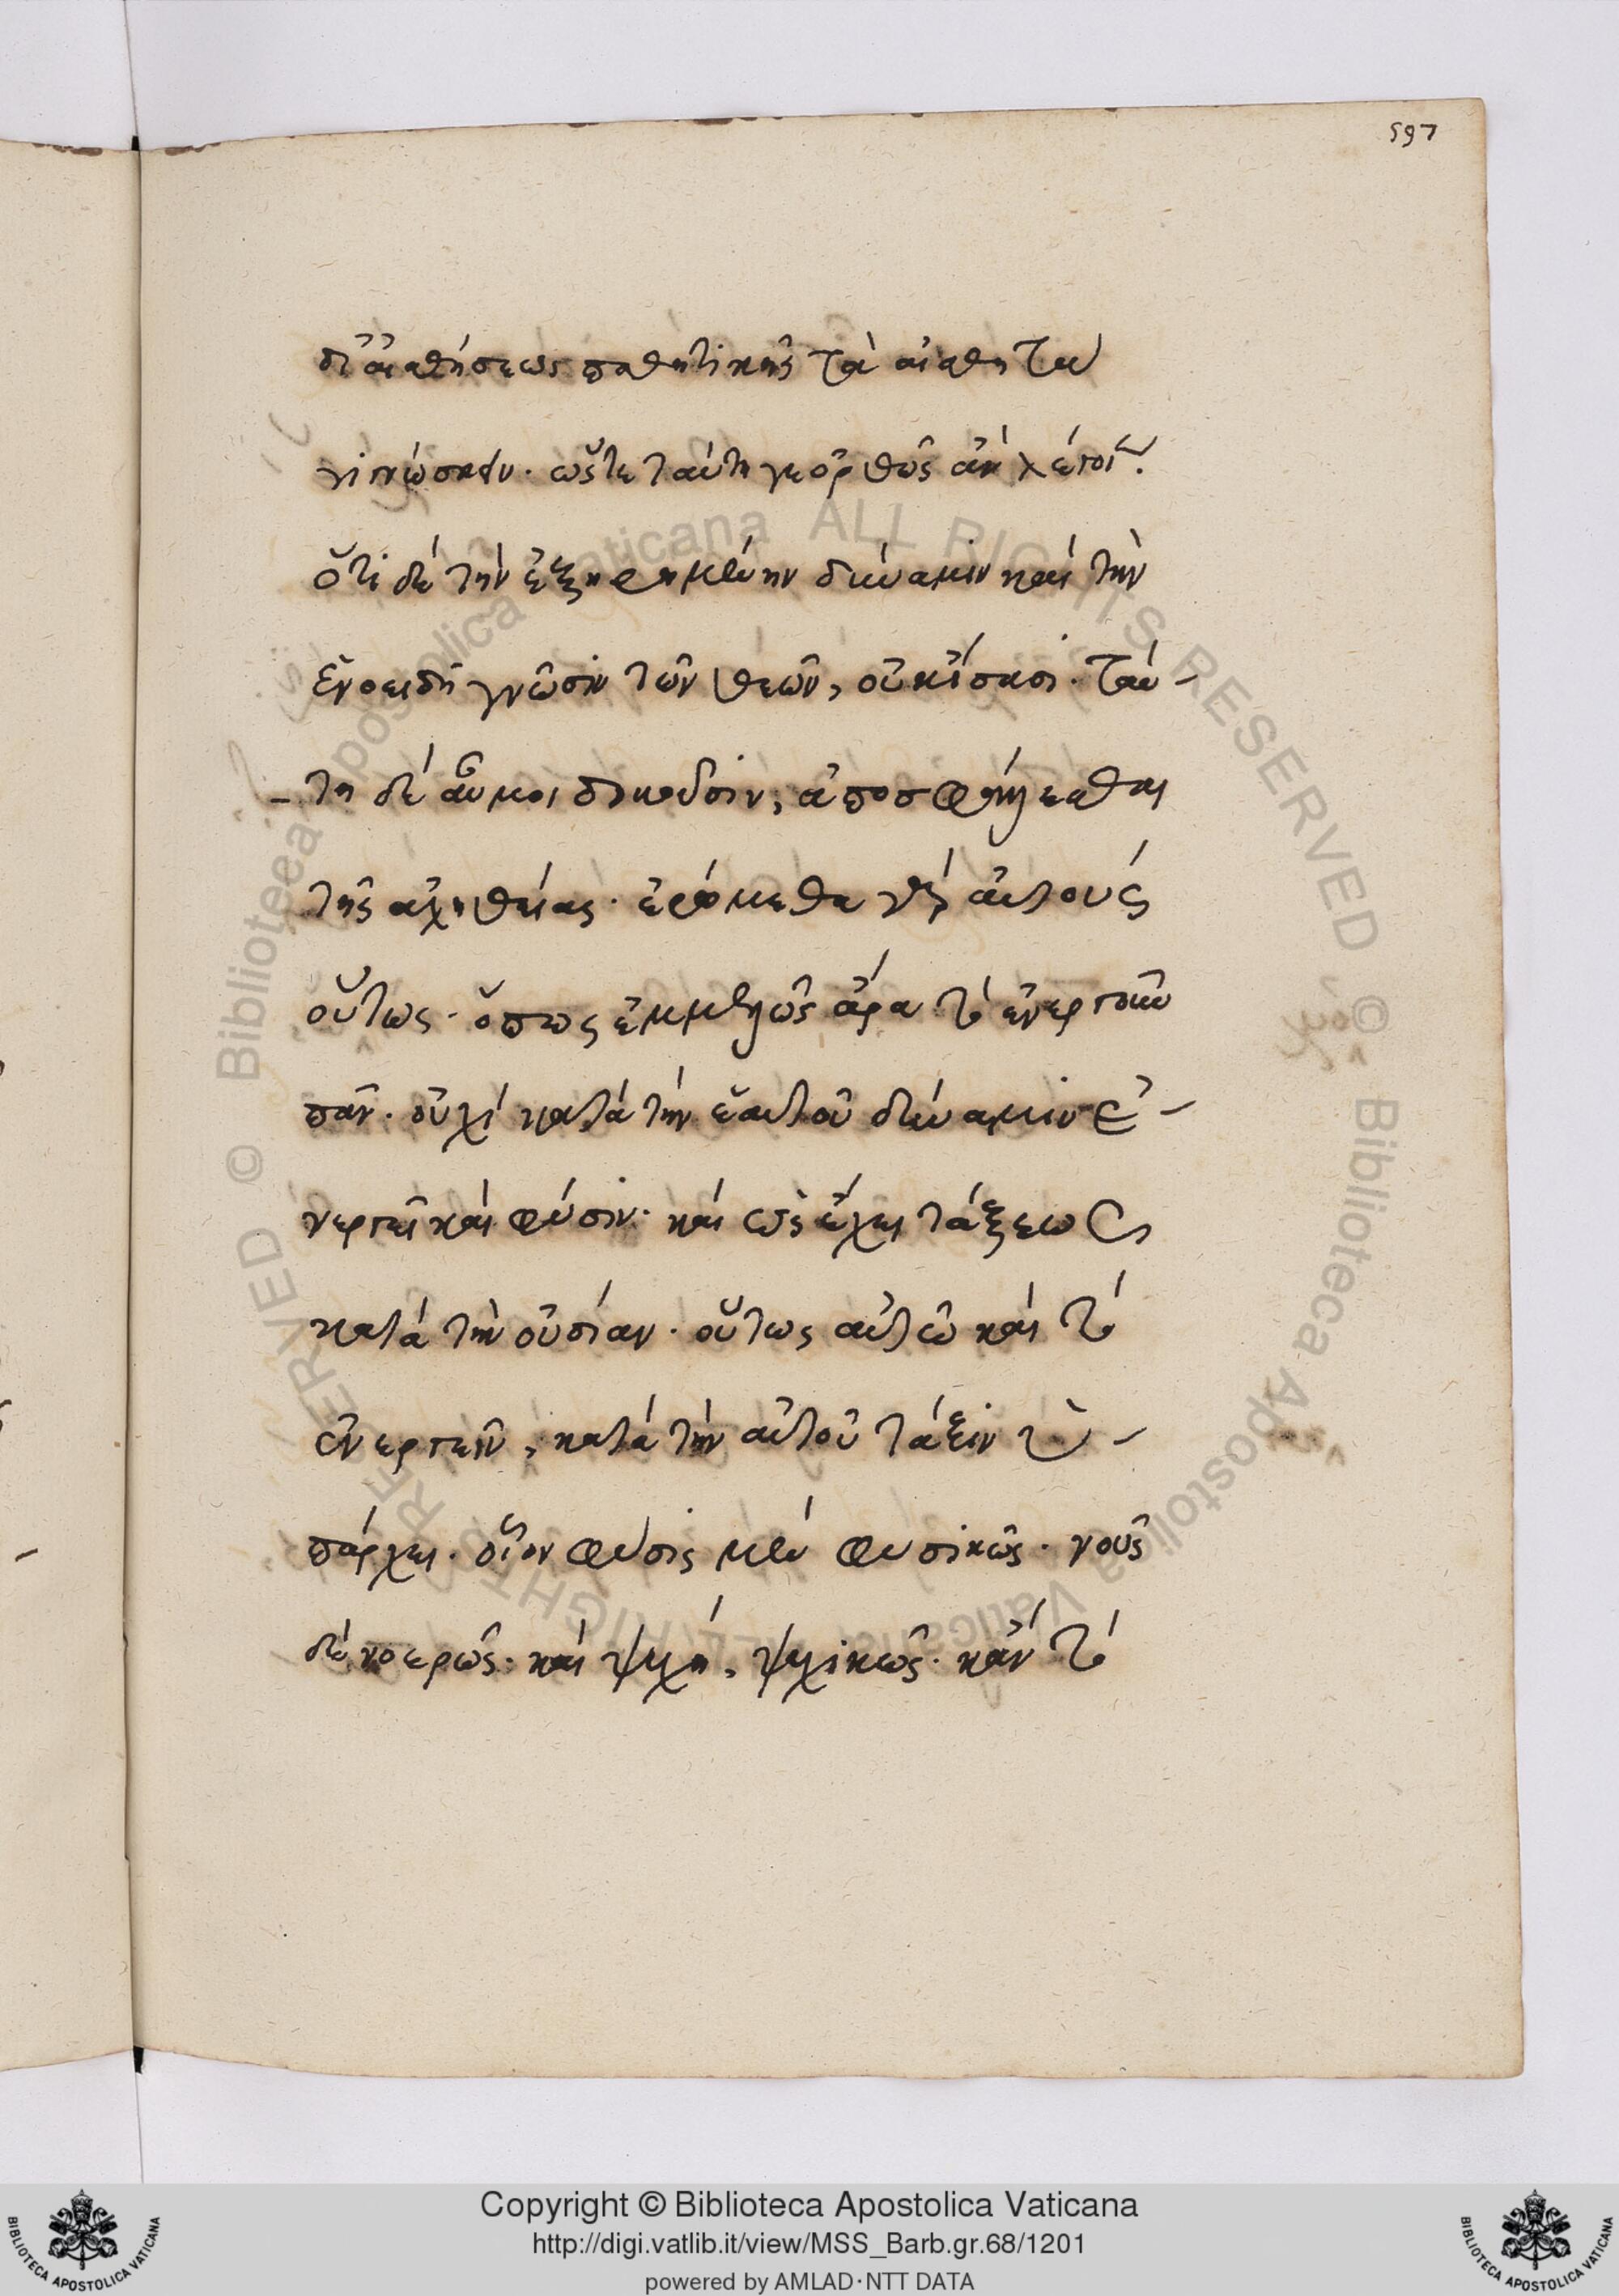 597
δι' αἰσθήσεως παθητικῆς τὰ αἰσθητὰ
γινώσκειν. ὥστε ταύτη γε ὀρθῶς ἂν λέγοιεν.
ὅτι δὲ τὴν ἐξηρημένην δύναμιν καὶ τὴν
ἑνοειδῆ γνῶσιν τῶν θεῶν, οὐκ ἴσασι. ταύ-
-τη δὲ αὖ μοι δοκοῦσιν, ἀποσφάλλεσθαι
τῆς ἀληθείας. ἐρώμεθα γὰρ αὐτοὺς
οὕτως. ὅπως ἐμμελῶς ἄρα τὸ ἐνεργοῦν
πᾶν. οὐχὶ κατὰ τὴν ἑαυτοῦ δύναμιν ἐ-
νεργεῖ καὶ φύσιν. καὶ ὡς ἔχει τάξεως
κατὰ τὴν οὐσίαν. οὕτως αὐτῶ καὶ τὸ
ἐνεργεῖν, κατὰ τὴν αὐτοῦ τάξιν ὑ-
πάρχει. οἷον φύσις μὲν φυσικῶς. νοῦς
δὲ νοερῶς. καὶ ψυχὴ, ψυχικῶς. κἂν τὸ
© Biblioteca Apostolica Vaticana ALL RIGHTS RESERVED © Biblioteca Apostolica Vaticana ALL RIGHTS RESERVED
Copyright © Biblioteca Apostolica Vaticana
http://digi.vatlib.it/view/MSS_Barb.gr.68/1201
powered by AMLAD·NTT DATA
BIBLIOTECA APOSTOLICA VATICANA
BIBLIOTECA APOSTOLICA VATICANA